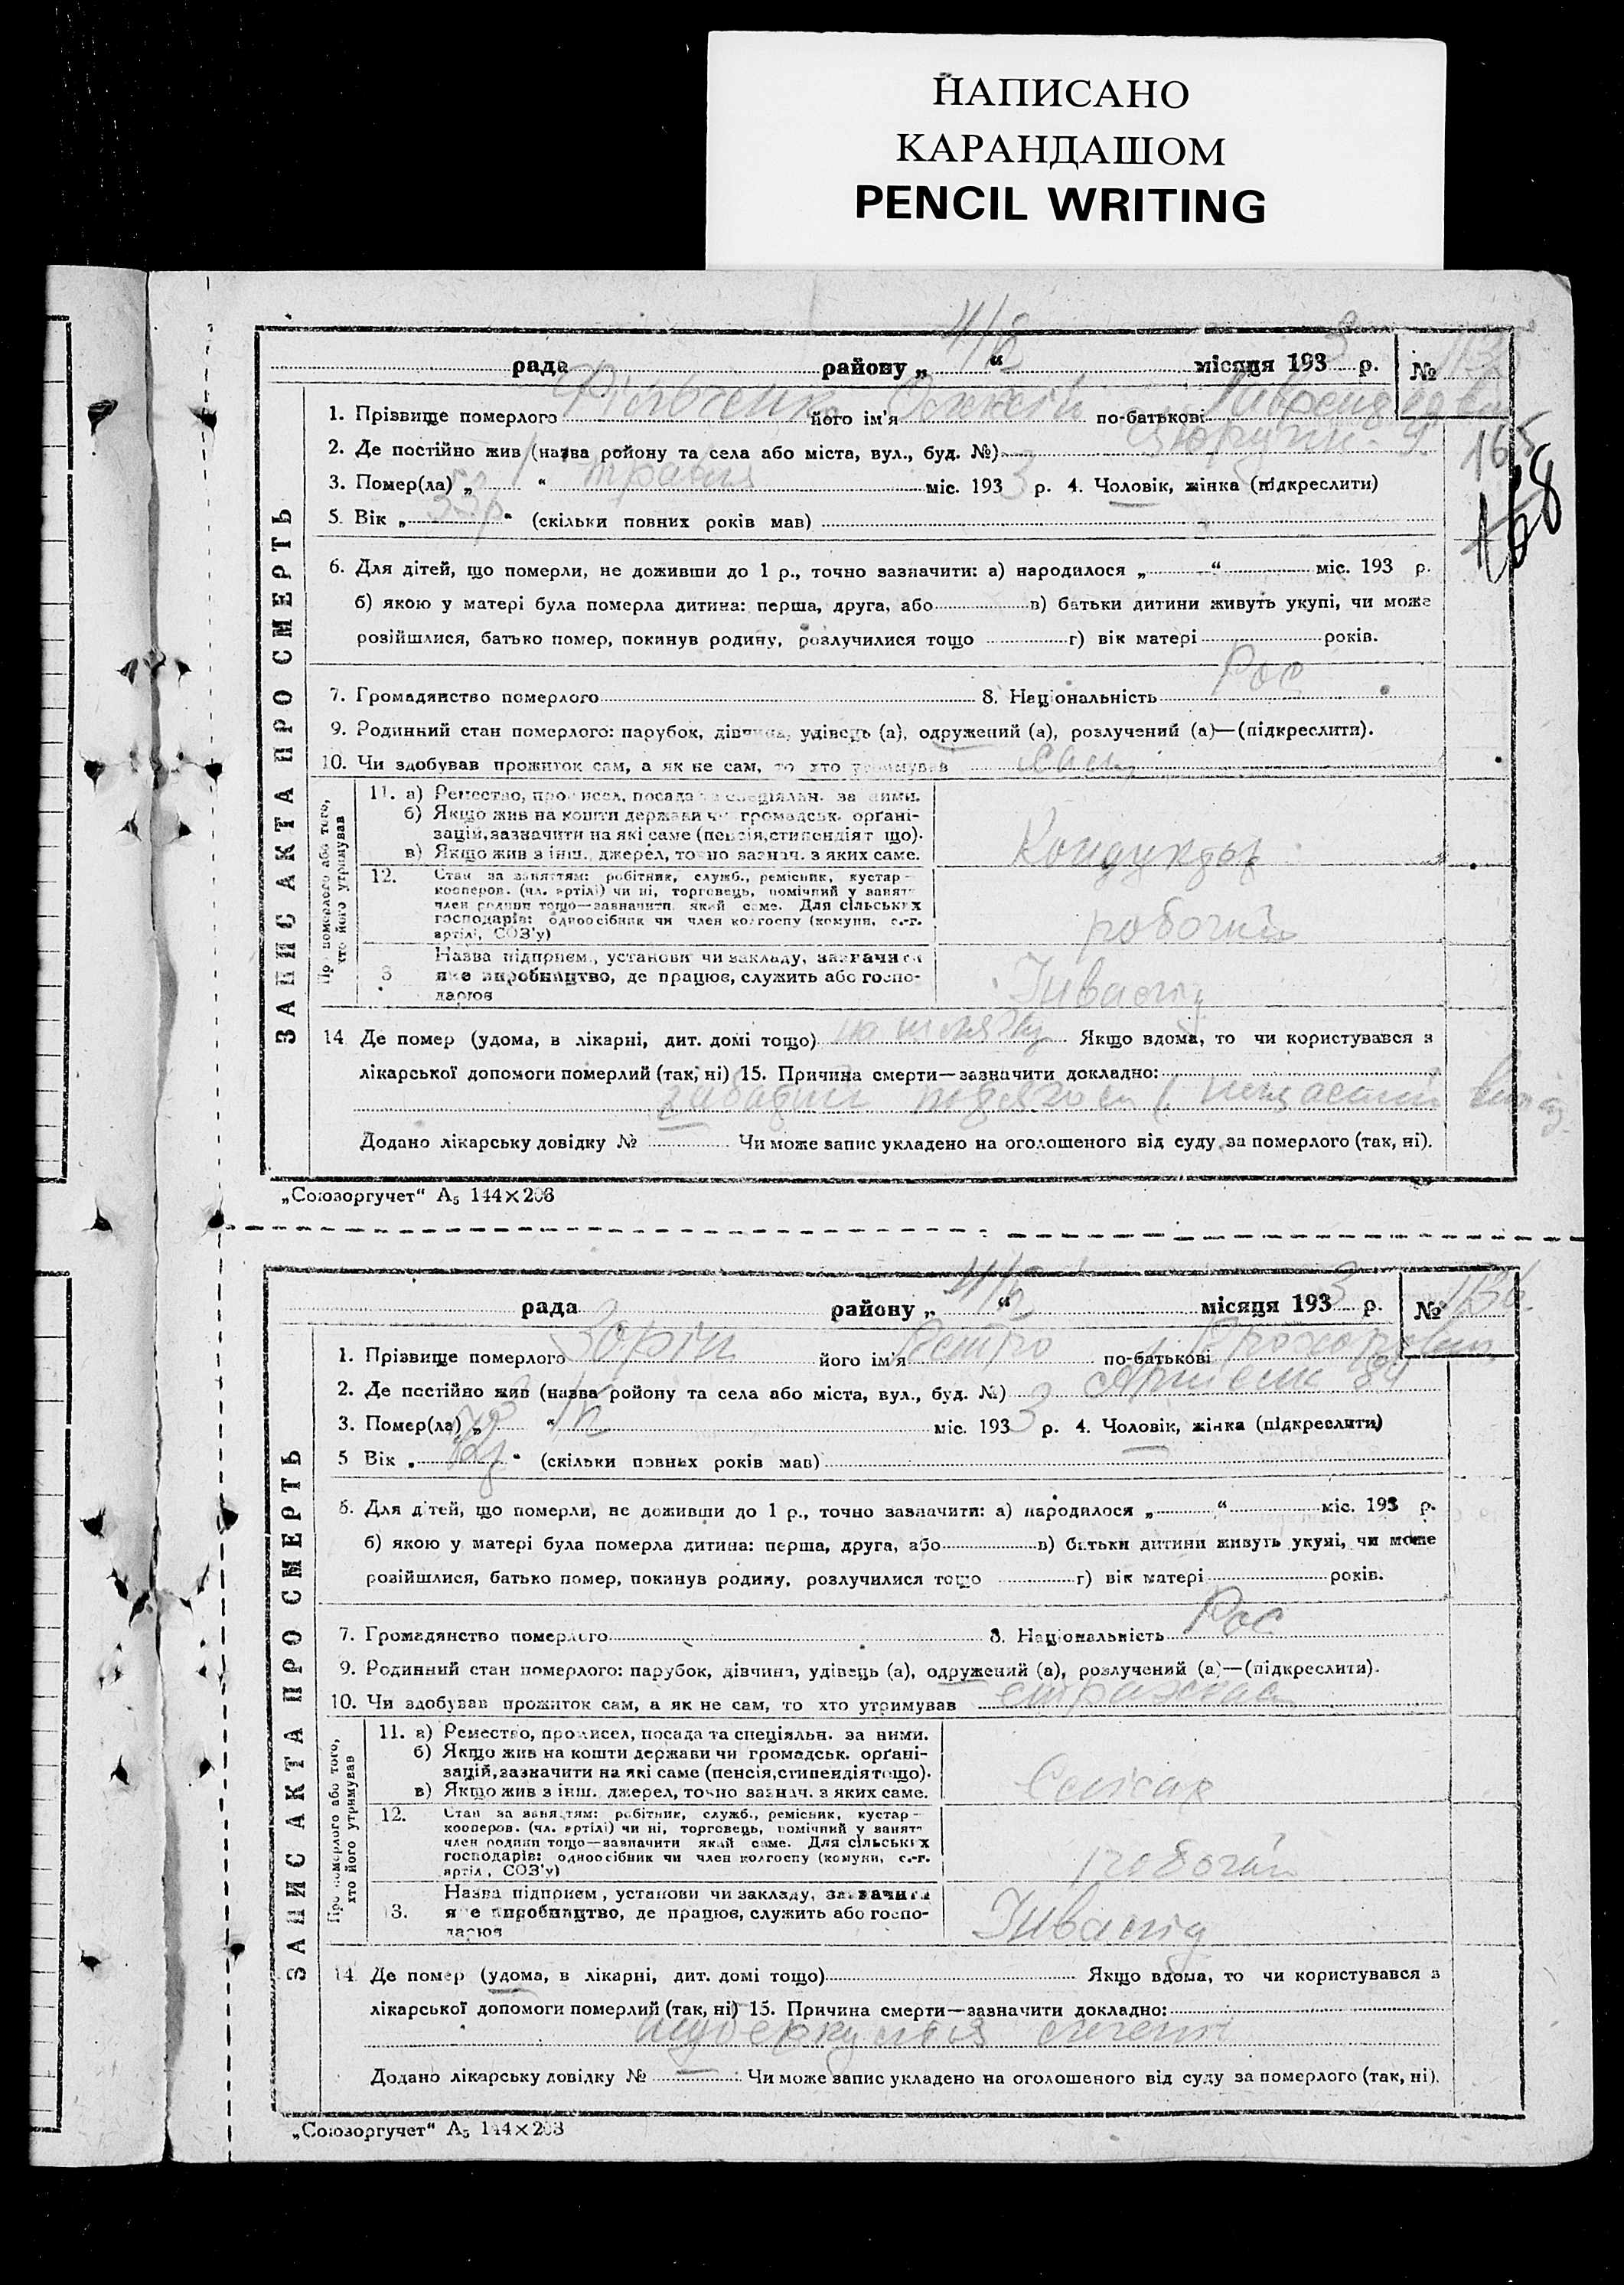 НАПИСАНО
КАРАНДАШОМ
PENCIL WRITING
4/6 3
рада району „ “ місяця 193 р. №
1. Прізвище померлого його ім'я Олексій по-батькові
2. Де постійно жив (назва ройону та села або міста, вул., буд. №)
165
3. Помер(ла) „ “ травня міс. 193 3 р. 4. Чоловік, жінка (підкреслити)
168
5. Вік „ 33р “ (скільки повних років мав)
ЗАПИС АКТА ПРО СМЕРТЬ
6. Для дітей, що померли, не доживши до 1 р., точно зазначити: а) народилося „ “ міс. 193 р.
б) якою у матері була померла дитина: перша, друга, або в) батьки дитини живуть укупі, чи може
розійшлися, батько помер, покинув родину, розлучилися тощо г) вік матері років.
7. Громадянство померлого 8. Національність Рос
9. Родинний стан померлого: парубок, дівчина, удівець (а), одружений (а), розлучений (а)—(підкреслити).
10. Чи здобував прожиток сам, а як не сам, то хто утримував
Про померлого або того, хто його утримував
11. а) Ремество, промисел, посада та спеціяльн. за ними.
б) Якщо жив на кошти держави чи громадськ. орґані-
зацій, зазначити на які саме (пенсія, стипендія тощо).
в) Якщо жив з інш. джерел, точно зазнач. з яких саме. Кондуктор
12. Стан за заняттям: робітник, служб., ремісник, кустар—
кооперов. (чл. артілі) чи ні, торговець, помічний у занятт
член родини тощо—зазначити який саме. Для сільських
господарів: одноосібник чи член колгоспу (комуни, с.-г.
артілі, СОЗ'у) робочий
Назва підприєм., установи чи закладу, зазначити
яке виробництво, де працює, служить або госпо-
дарює
14 Де помер (удома, в лікарні, дит. домі тощо) Якщо вдома, то чи користувався з
лікарської допомоги померлий (так, ні) 15. Причина смерти—зазначити докладно:
Додано лікарську довідку № Чи може запис укладено на оголошеного від суду за померлого (так, ні).
„Союзоргучет“ А5 144×203
4/6 3
рада району „ “ місяця 193 р. № 1136
1. Прізвище померлого Зорін його ім'я Петро по-батькові Прохорович
2. Де постійно жив (назва ройону та села або міста, вул., буд. №) 84
3. Помер(ла) „ “ міс. 193 3 р. 4. Чоловік, жінка (підкреслити)
5 Вік „ “ (скільки повних років мав)
ЗАПИС АКТА ПРО СМЕРТЬ
6. Для дітей, що померли, не доживши до 1 р., точно зазначити: а) народилося „ “ міс. 193 р.
б) якою у матері була померла дитина: перша, друга, або в) батьки дитини живуть укупі, чи може
розійшлися, батько помер, покинув родину, розлучилися тощо г) вік матері років.
7. Громадянство померлого 8. Національність Рос
9. Родинний стан померлого: парубок, дівчина, удівець (а), одружений (а), розлучений (а)—(підкреслити).
10. Чи здобував прожиток сам, а як не сам, то хто утримував
Про померлого або того, хто його утримував
11. а) Ремество, промисел, посада та спеціяльн. за ними.
б) Якщо жив на кошти держави чи громадськ. орґані-
зацій, зазначити на які саме (пенсія, стипендія тощо).
в) Якщо жив з інш. джерел, точно зазнач. з яких саме.
12. Стан за заняттям: робітник, служб., ремісник, кустар—
кооперов. (чл. артілі) чи ні, торговець, помічний у занятт
член родини тощо—зазначити який саме. Для сільських
господарів: одноосібник чи член колгоспу (комуни, с.-г.
артіл., СОЗ'у) робочий
Назва підприєм., установи чи закладу, зазначити
13. яке виробництво, де працює, служить або госпо-
дарює
14 Де помер (удома, в лікарні, дит. домі тощо) Якщо вдома, то чи користувався з
лікарської допомоги померлий (так, ні) 15. Причина смерти—зазначити докладно:
туберкульоз легень
Додано лікарську довідку № Чи може запис укладено на оголошеного від суду за померлого (так, ні).
„Союзоргучет“ А5 144×203